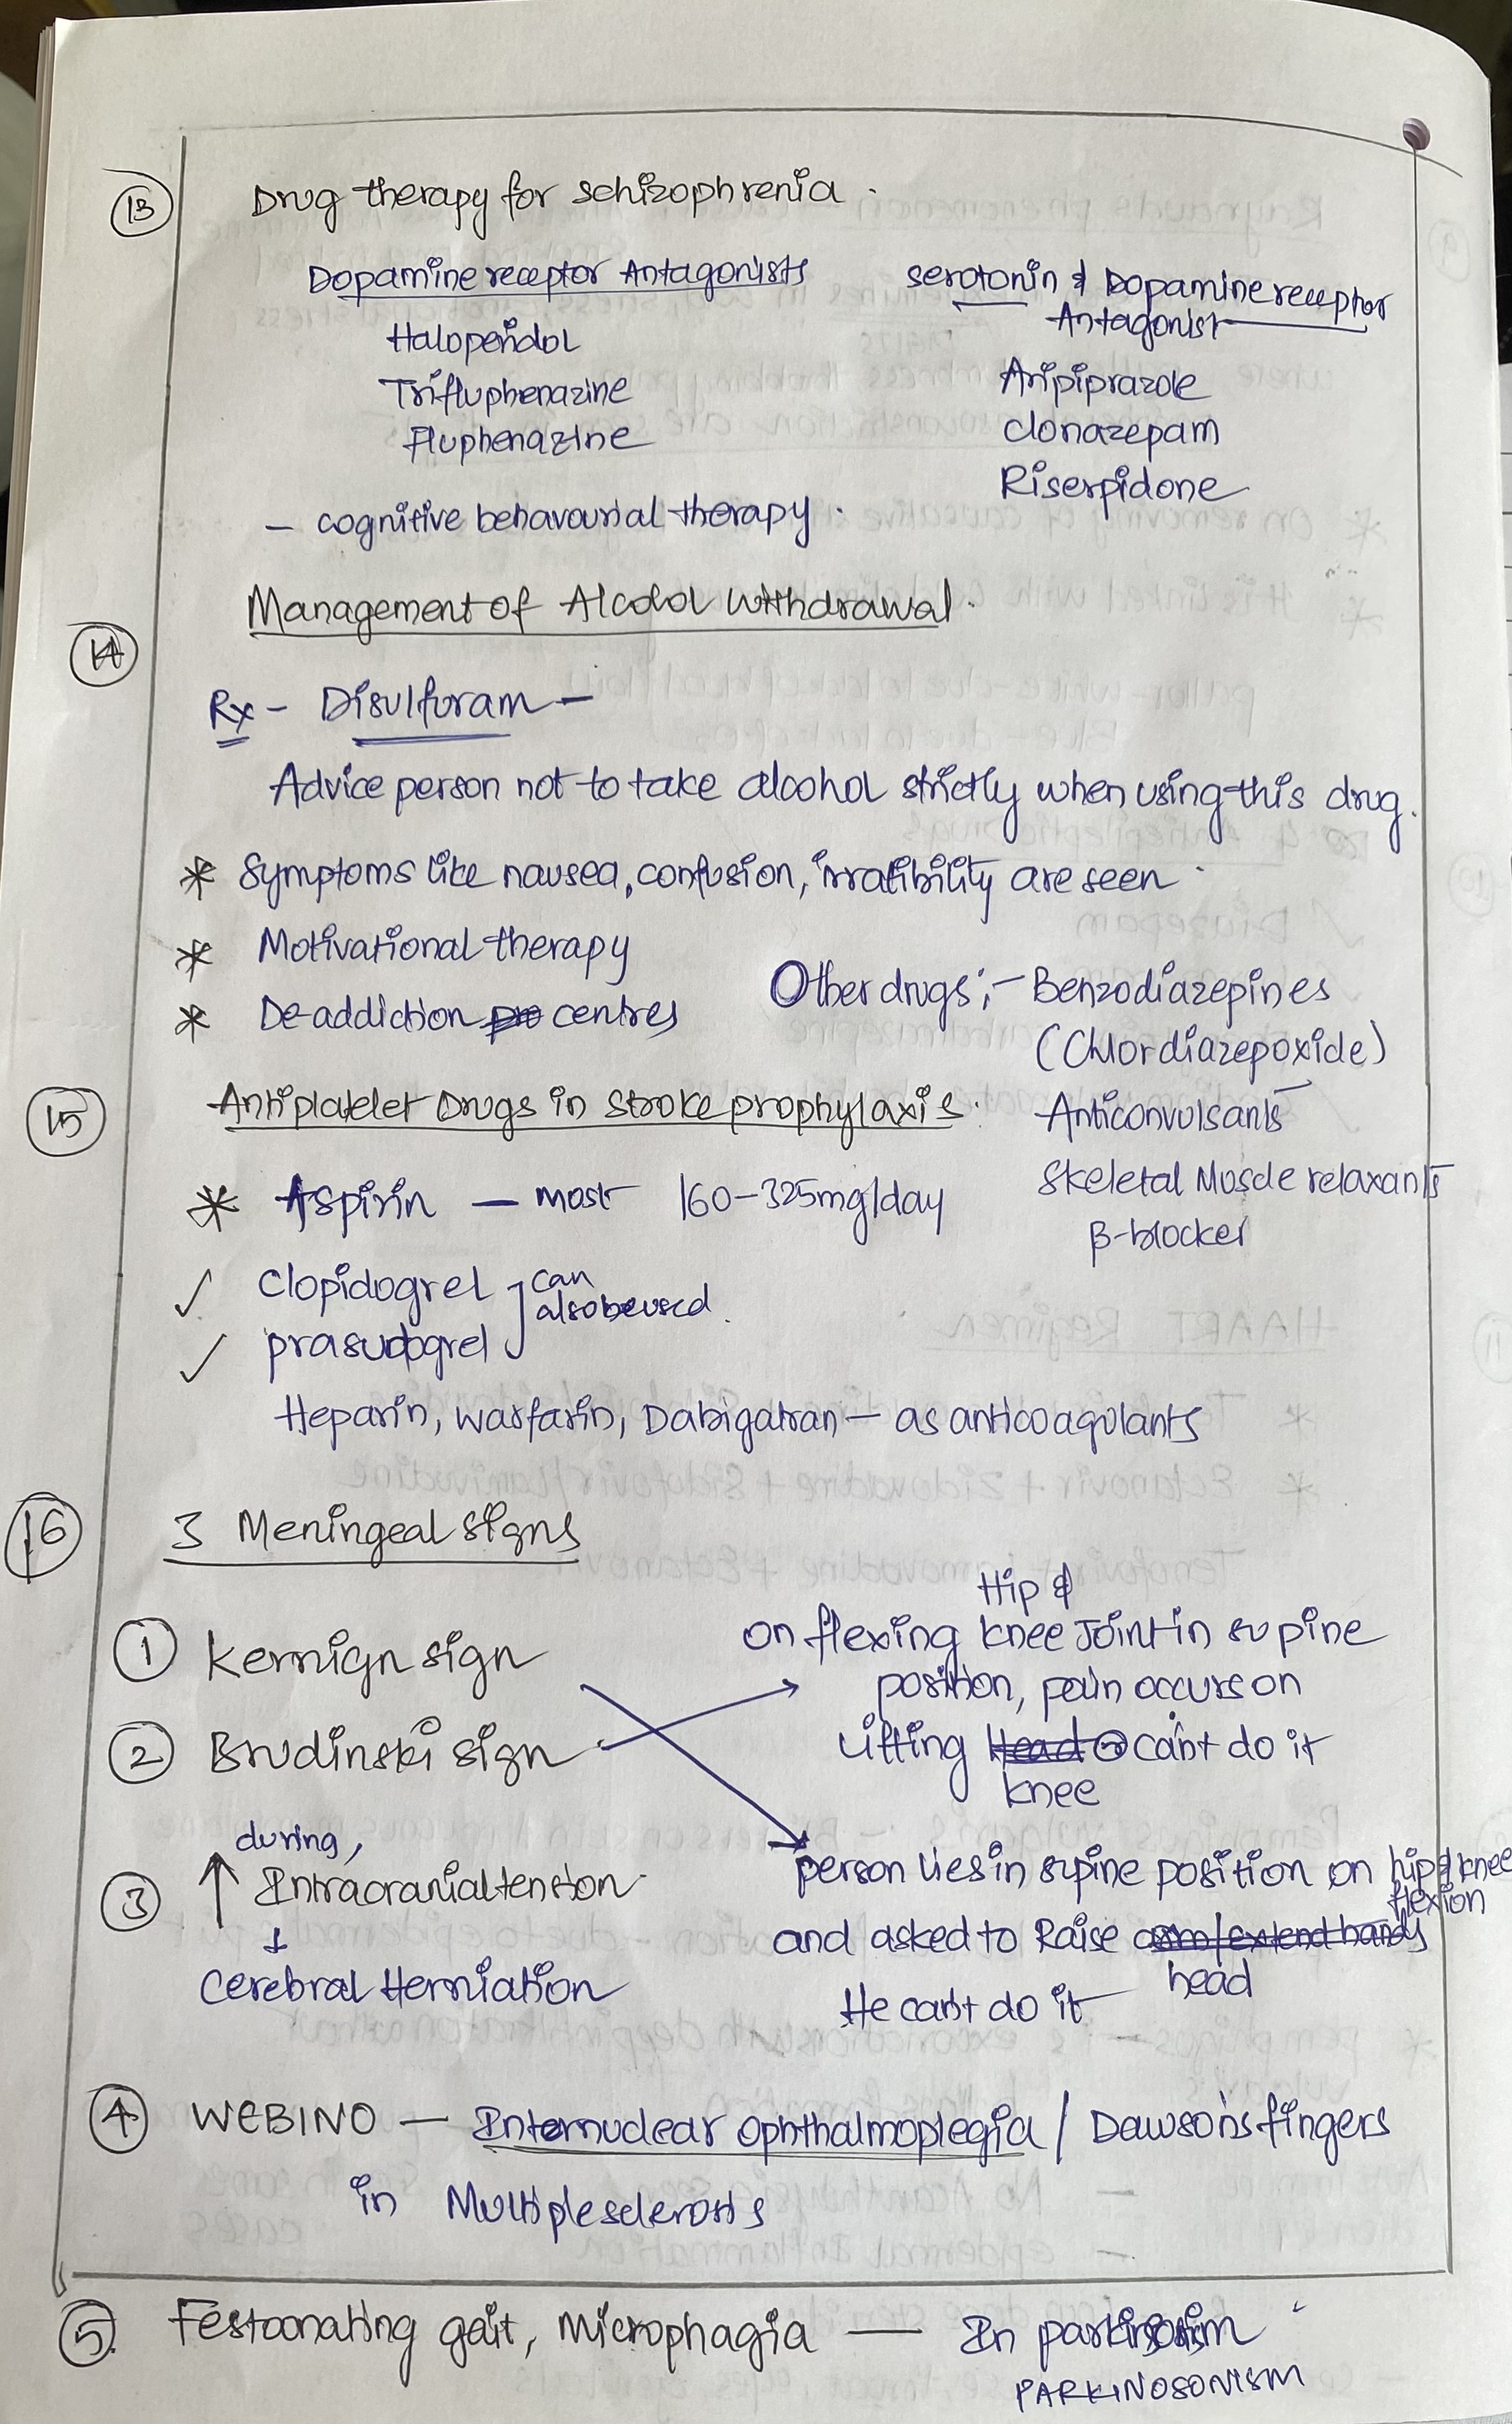 13 Drug therapy for schizophrenia.
Dopamine receptor Antagonists
Haloperidol
Trifluphenazine
Fluphenazine
serotonin & Dopamine receptor
Antagonist
Aripiprazole
clonazepam
Riserpidone
- cognitive behavourial therapy.
14 Management of Alcohol withdrawal.
Rx - Disulfuram -
Advice person not to take alcohol strictly when using this drug.
* Symptoms like nausea, confusion, irratibility are seen.
* Motivational therapy
* De-addiction centres
Other drugs:- Benzodiazepines
(Chlordiazepoxide)
Anticonvulsants
Skeletal Muscle relaxants
β-blocker
15 Antiplatelet Drugs in stroke prophylaxis.
* Aspirin - most 160-325mg/day
✓ Clopidogrel
✓ prasudogrel
can
also be used.
Heparin, warfarin, Dabigatran - as anticoagulants
16 3 Meningeal signs
① Kernign sign
② Brudinski sign
Hip &
on flexing knee Joint in supine
position, pain occurs on
Lifting Head can't do it
knee
during,
③ ↑ Intracranial tension
↓
Cerebral Herniation
person lies in supine position on hip & knee
flexion
and asked to Raise arm/extend hands
head
He can't do it
④ WEBINO - Internuclear Ophthalmoplegia / Dawson's fingers
in Multiple sclerosis
⑤ Festoonating gait, Microphagia - In parkinsonism
PARKINOSONISM